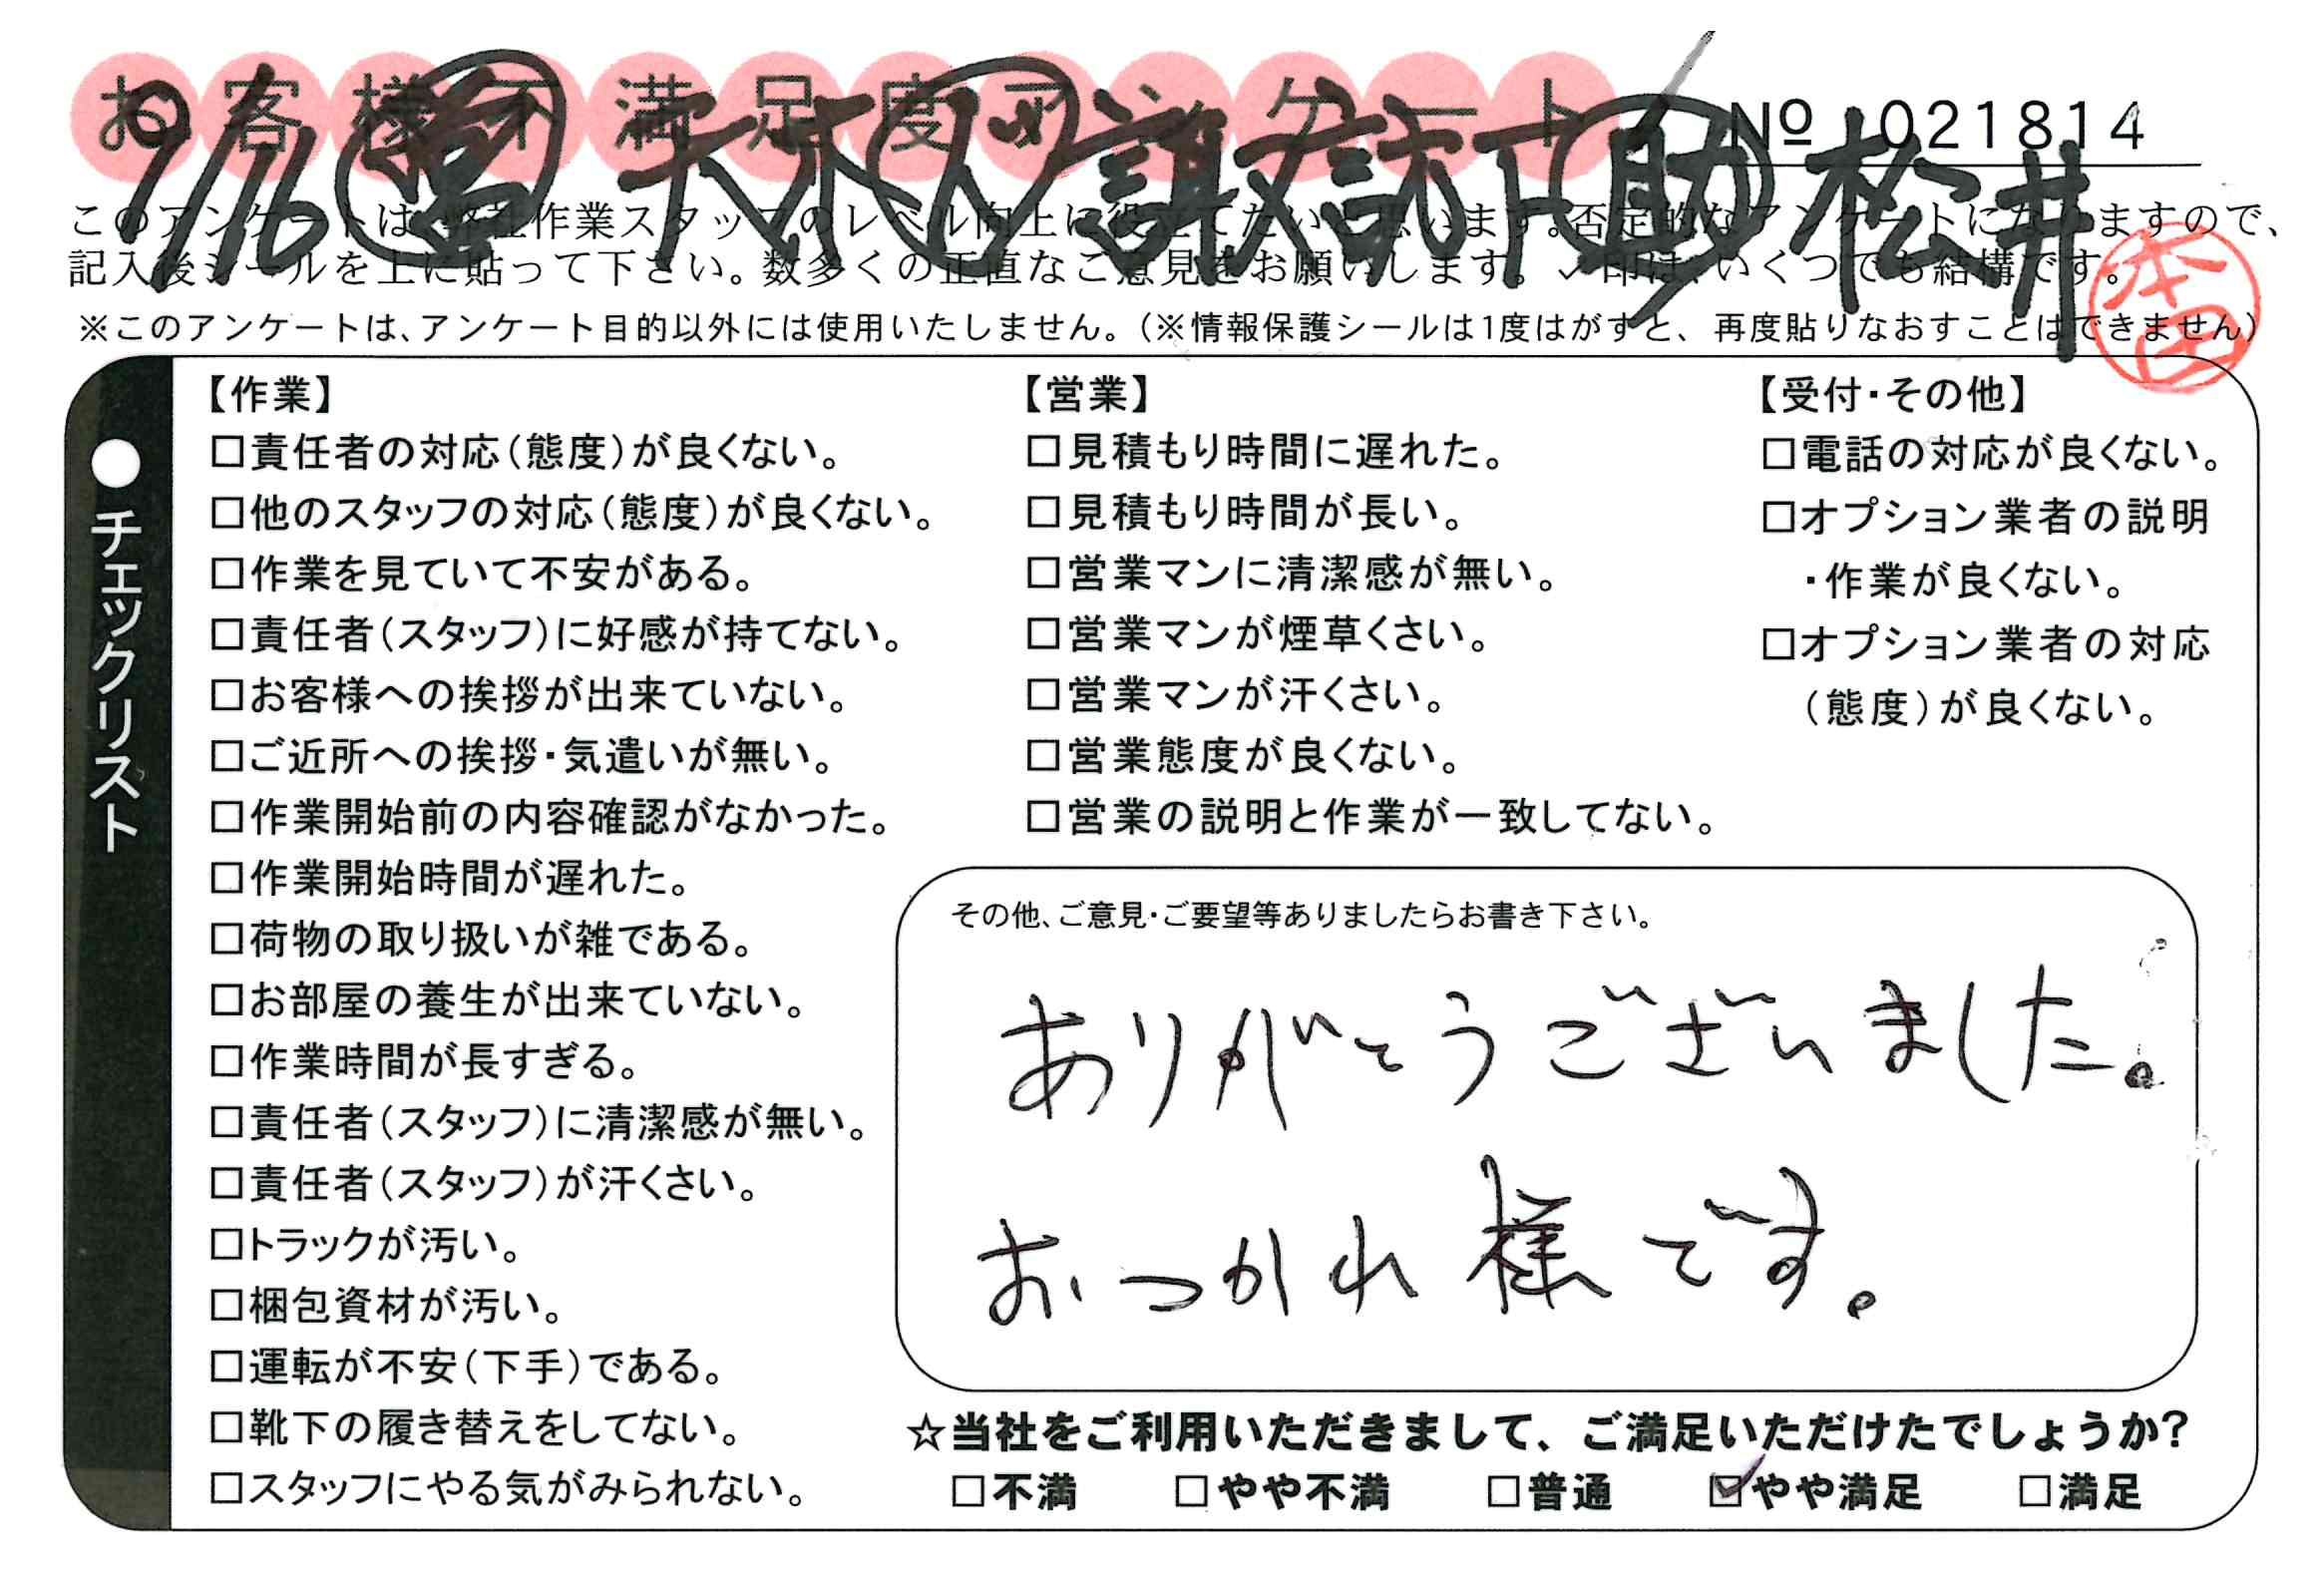 お客様不満足度アンケート
№ 021814
9/16 営 大木 人 諏訪下 助 松井
このアンケートは、弊社作業スタッフのレベル向上に役立てたいと思います。否定的なアンケートになりますので、
記入後シールを上に貼って下さい。数多くの正直なご意見をお願いします。✓印は、いくつでも結構です。
本田
※このアンケートは、アンケート目的以外には使用いたしません。（※情報保護シールは1度はがすと、再度貼りなおすことはできません）
●チェックリスト
【作業】
□責任者の対応（態度）が良くない。
□他のスタッフの対応（態度）が良くない。
□作業を見ていて不安がある。
□責任者（スタッフ）に好感が持てない。
□お客様への挨拶が出来ていない。
□ご近所への挨拶・気遣いが無い。
□作業開始前の内容確認がなかった。
□作業開始時間が遅れた。
□荷物の取り扱いが雑である。
□お部屋の養生が出来ていない。
□作業時間が長すぎる。
□責任者（スタッフ）に清潔感が無い。
□責任者（スタッフ）が汗くさい。
□トラックが汚い。
□梱包資材が汚い。
□運転が不安（下手）である。
□靴下の履き替えをしてない。
□スタッフにやる気がみられない。
【営業】
□見積もり時間に遅れた。
□見積もり時間が長い。
□営業マンに清潔感が無い。
□営業マンが煙草くさい。
□営業マンが汗くさい。
□営業態度が良くない。
□営業の説明と作業が一致してない。
【受付・その他】
□電話の対応が良くない。
□オプション業者の説明
・作業が良くない。
□オプション業者の対応
（態度）が良くない。
その他、ご意見・ご要望等ありましたらお書き下さい。
ありがとうございました。
おつかれ様です。
☆当社をご利用いただきまして、ご満足いただけたでしょうか？
□不満 □やや不満 □普通 ☑やや満足 □満足